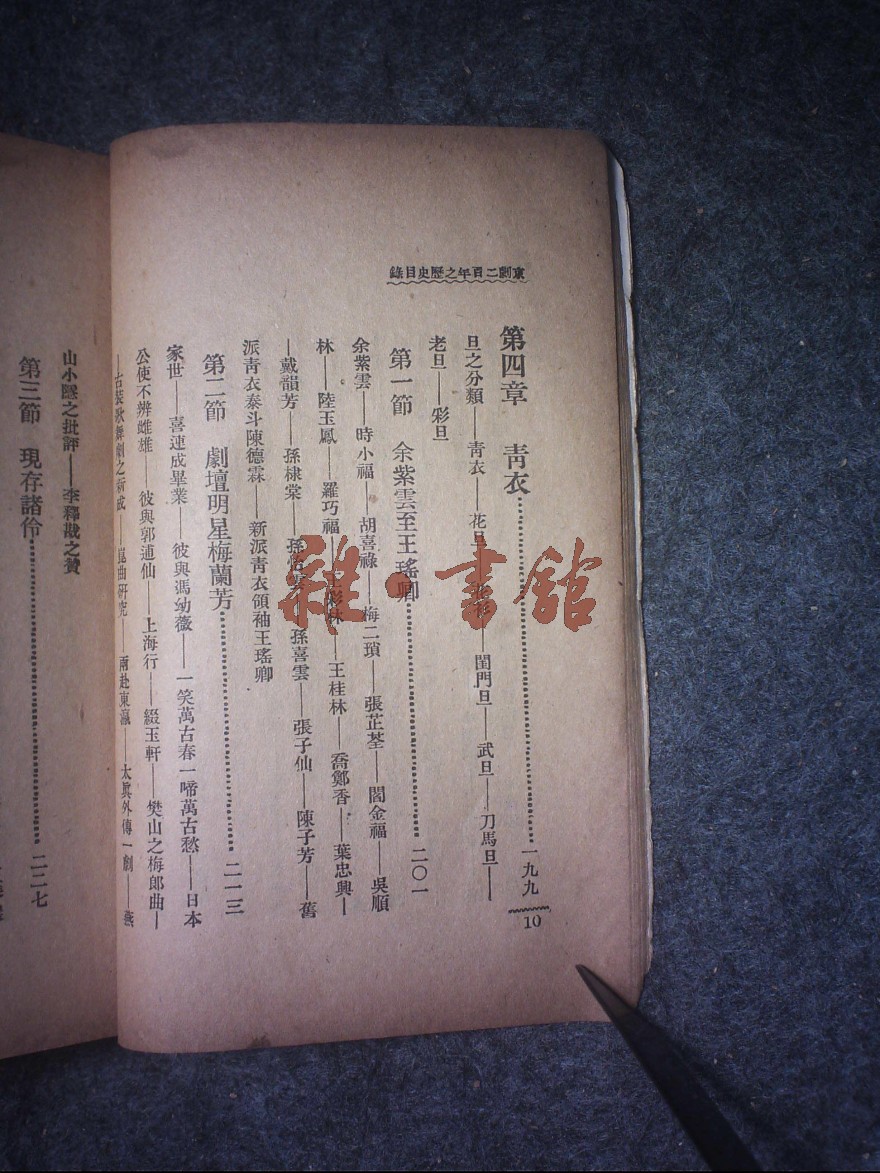 京劇二百年之歷史目錄
第四章　青衣……一九九
旦之分類——青衣——花旦——花衫——閨門旦——武旦——刀馬旦——
老旦——彩旦
第一節　余紫雲至王瑤卿……二〇一
余紫雲——時小福——胡喜祿——梅二瑣——張芷荃——閻金福——吳順
林——陸玉鳳——羅巧福——王彩林——王桂林——喬鄭香——葉忠興—
—戴韻芳——孫棣棠——孫怡雲——孫喜雲——張子仙——陳子芳——舊
派青衣泰斗陳德霖——新派青衣領袖王瑤卿
第二節　劇壇明星梅蘭芳……二一三
家世——喜連成畢業——彼與馮幼薇——一笑萬古春一啼萬古愁——日本
公使不辨雌雄——彼與郭逋仙——上海行——綴玉軒——樊山之梅郎曲—
—古裝歌舞劇之新成——崑曲研究——兩赴東瀛——太眞外傳一劇——燕
山小隱之批評——李釋戡之贊
第三節　現存諸伶……二二七
10
雜·書館